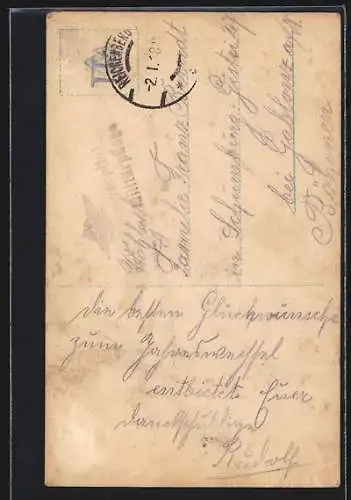 REICHENBERG
-2.I.18
Familie Franz
in Schumburg-Gistei 47
bei Gablonz a/N.
Böhmen
die besten Glückwünsche
zum Jahreswechsel
entbietet Euer
dankschuldige
Rudolf